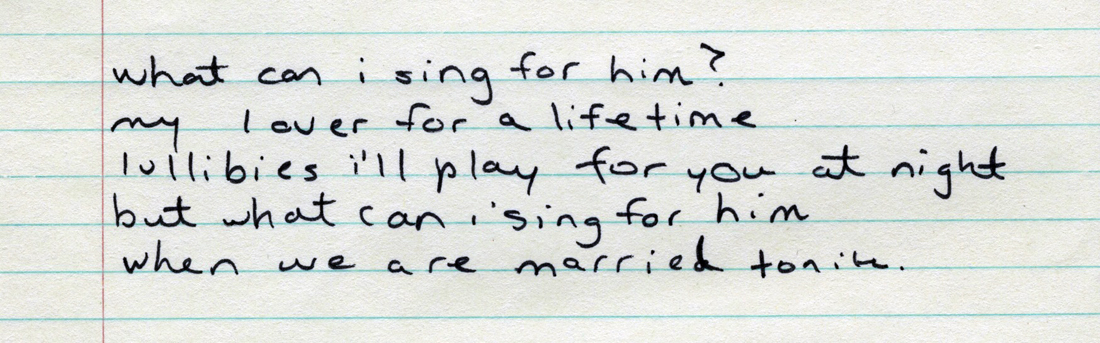 what can i sing for him?
my lover for a lifetime
lullibies i'll play for you at night
but what can i sing for him
when we are married tonite.